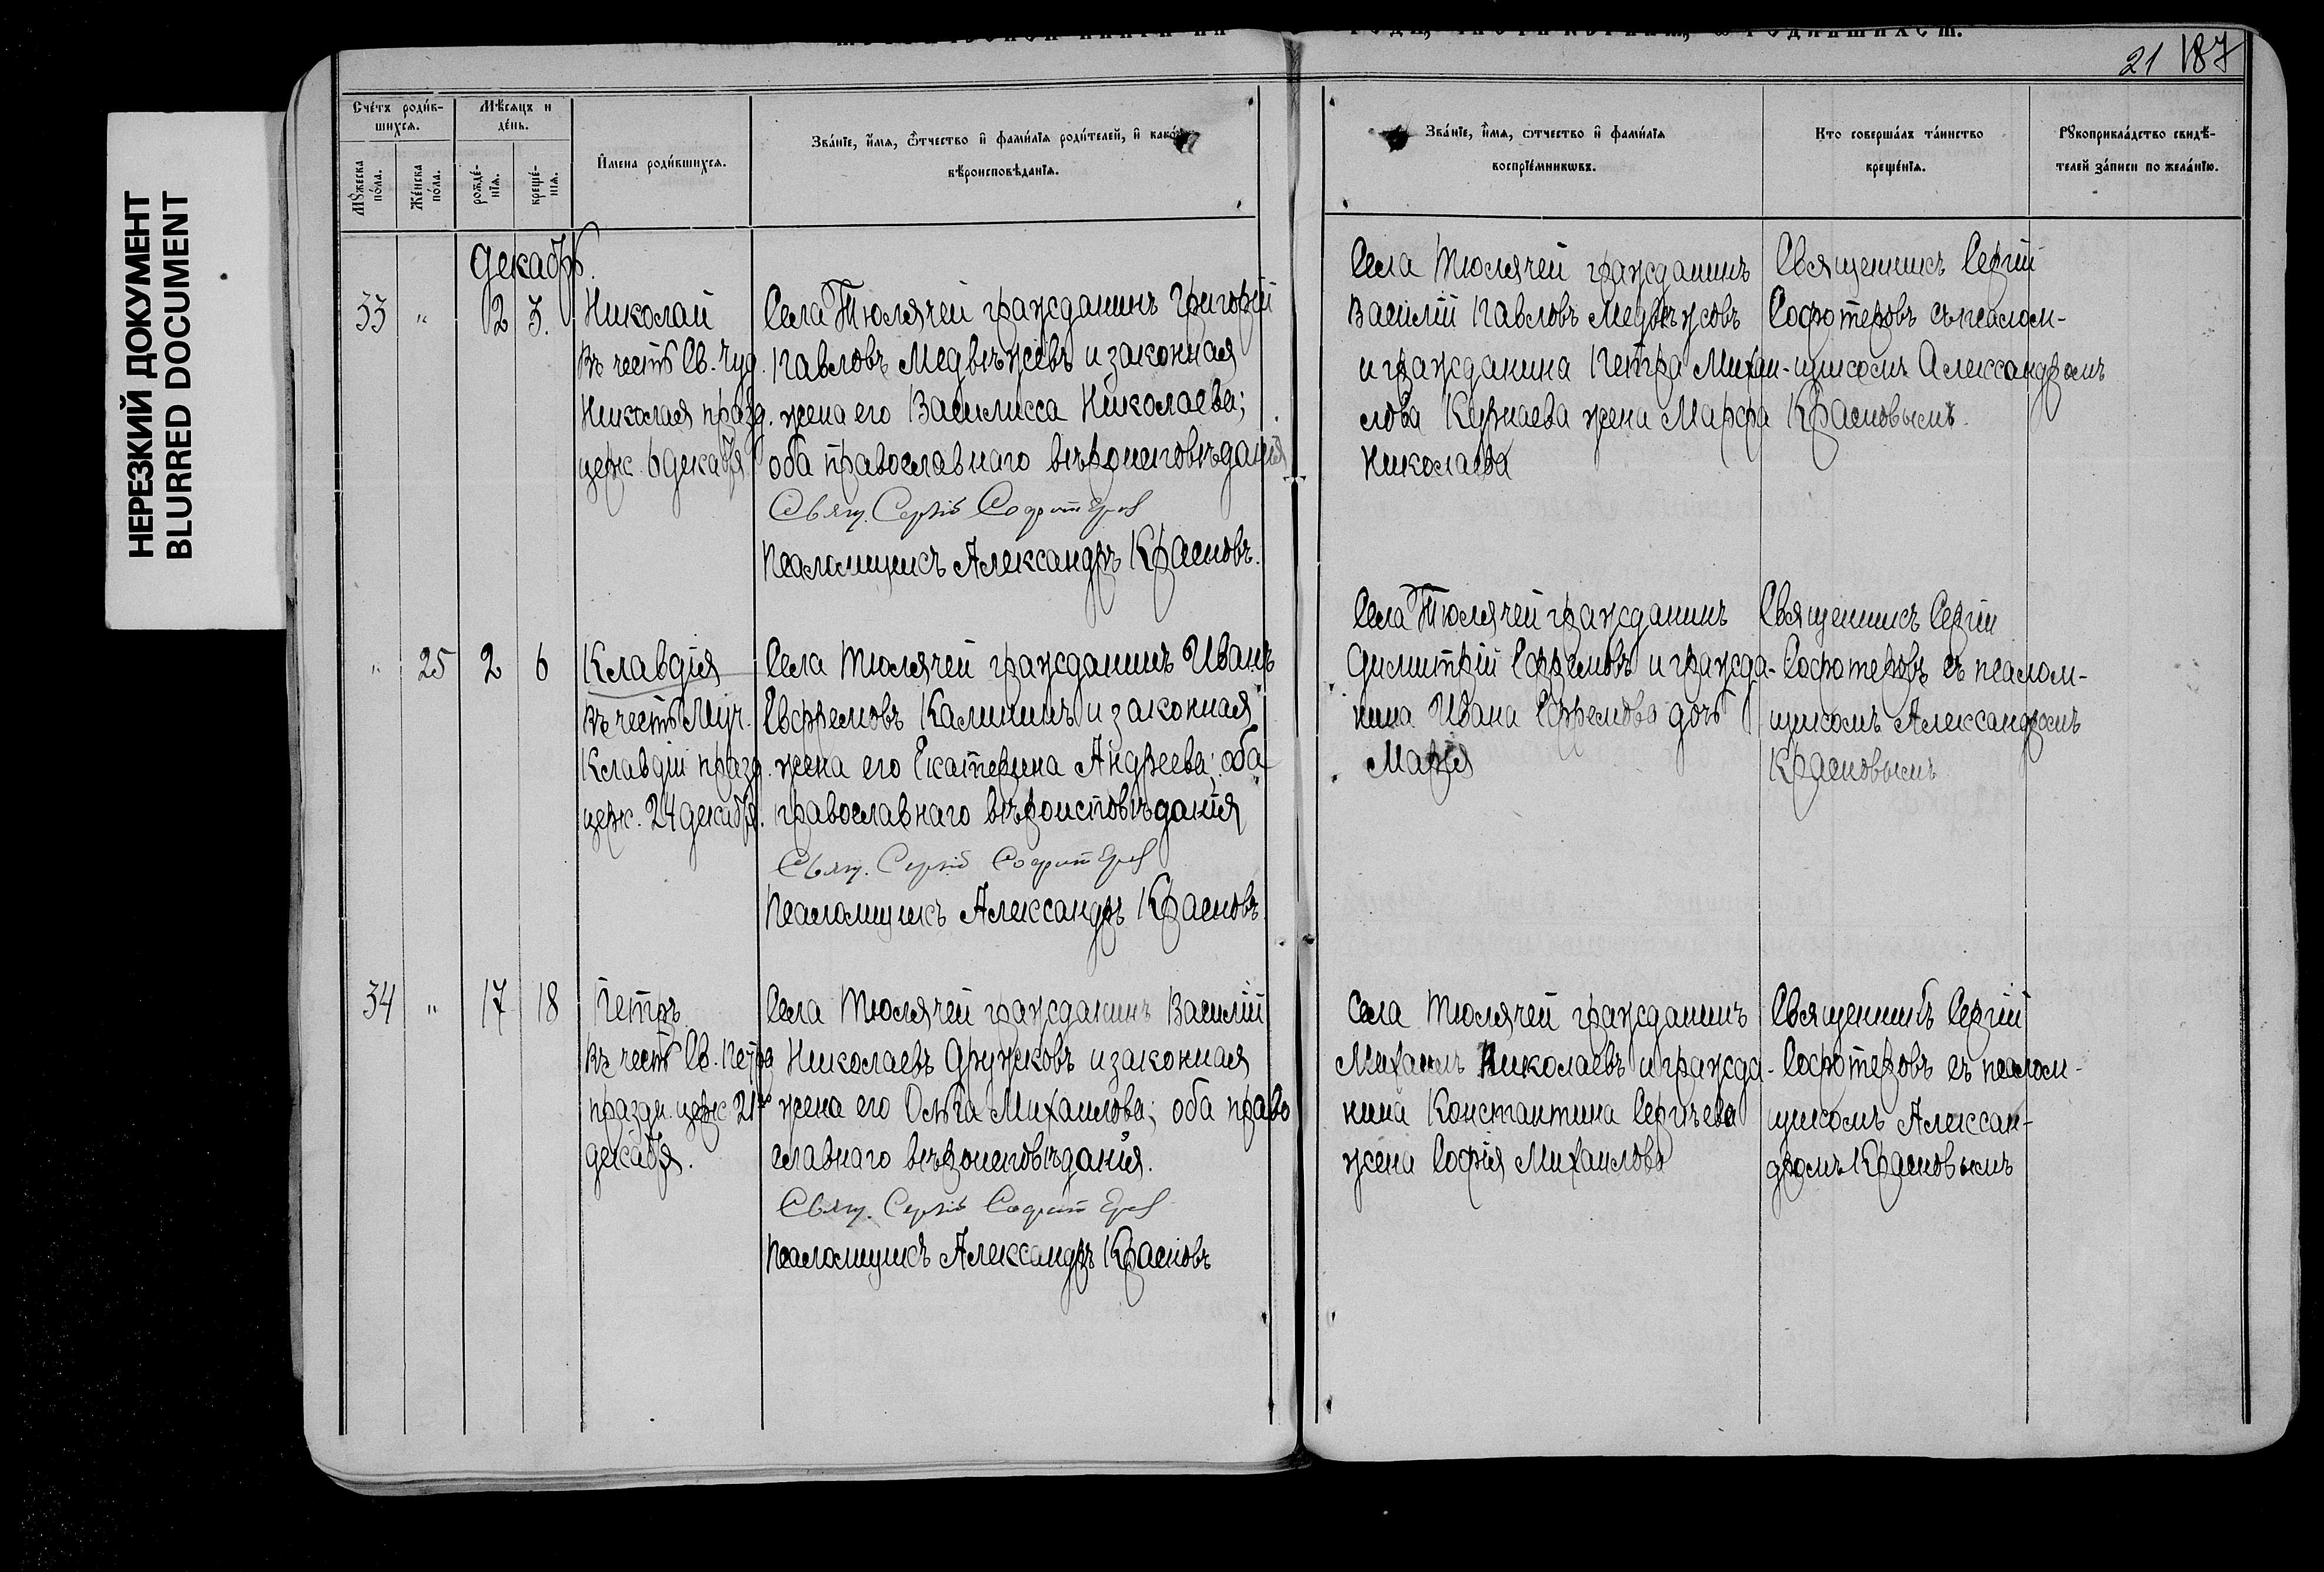 НЕРЕЗКИЙ ДОКУМЕНТ
BLURRED DOCUMENT
21 187
Счетъ родив-
шихся.
Мѣсяцъ и
день.
Мꙋжеска
пола.
Женска
пола.
рожде-
нїѧ.
креще-
нїѧ.
Имена родившихся.
Званїе, имѧ, ѿчество и фамилїѧ родителей, и какого
вѣроисповѣданїѧ.
Званїе, имѧ, ѿтчество и фамилїѧ
воспрїемникѡвъ.
Кто совершалъ таинство
крещенїѧ.
Рꙋкоприкладство свидѣ-
телей записи по желанїю.
Декабрь.
33 " 2 3.
Николай
въ честь Св. Чуд.
Николая празд.
церк. 6 декабря
Села Тюлячей гражданинъ Григорій
Павловъ Медвѣжевъ и законная
жена его Василисса Николаева;
оба православнаго вѣроисповѣданія
Свящ. Сергій Софотеровъ
Псаломщикъ Александръ Красновъ.
Села Тюлячей гражданинъ
Василій Павловъ Медвѣжовъ
и гражданина Петра Михаи-
лова жена Марфа
Николаева
Священникъ Сергій
Софотеровъ съ псалом-
щикомъ Александромъ
Красновымъ.
" 25 2 6
Клавдія
въ честь Муч.
Клавдіи празд.
церк. 24 декабр.
Села Тюлячей гражданинъ Иванъ
Евфремовъ Калининъ и законная
жена его Екатерина Андреева; оба
православнаго вѣроисповѣданія
Свящ. Сергій Софотеровъ
Псаломщикъ Александръ Красновъ
Села Тюлячей гражданинъ
Димитрій Ефремовъ и гражда-
нина Ивана Ефремова дочь
Марія
Священникъ Сергій
Софотеровъ съ псалом-
щикомъ Александромъ
Красновымъ
34 " 17 18
Петръ
въ честь Св. Петра
праздн. церк. 21го
декабря.
Села Тюлячей гражданинъ Василій
Николаевъ Дружковъ и законная
жена его Ольга Михаилова; оба право
славнаго вѣроисповѣданія.
Свящ. Сергій Софотеровъ
Псаломщикъ Александръ Красновъ
Села Тюлячей гражданинъ
Михаилъ Николаевъ и гражда-
нина Константина Сергѣева
жена Софія Михаилова
Священникъ Сергій
Софотеровъ съ псалом-
щикомъ Алексан-
дромъ Красновымъ